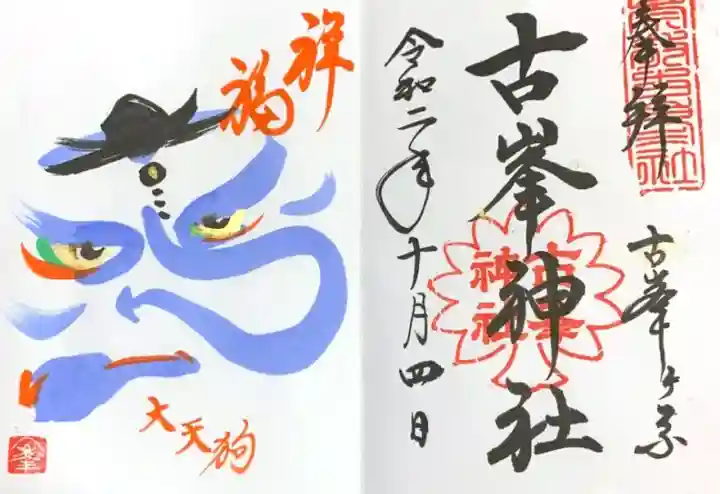 奉拝
古峯ヶ原
古峯神社
令和二年十月四日
祥
福
大天狗
古峯
神社